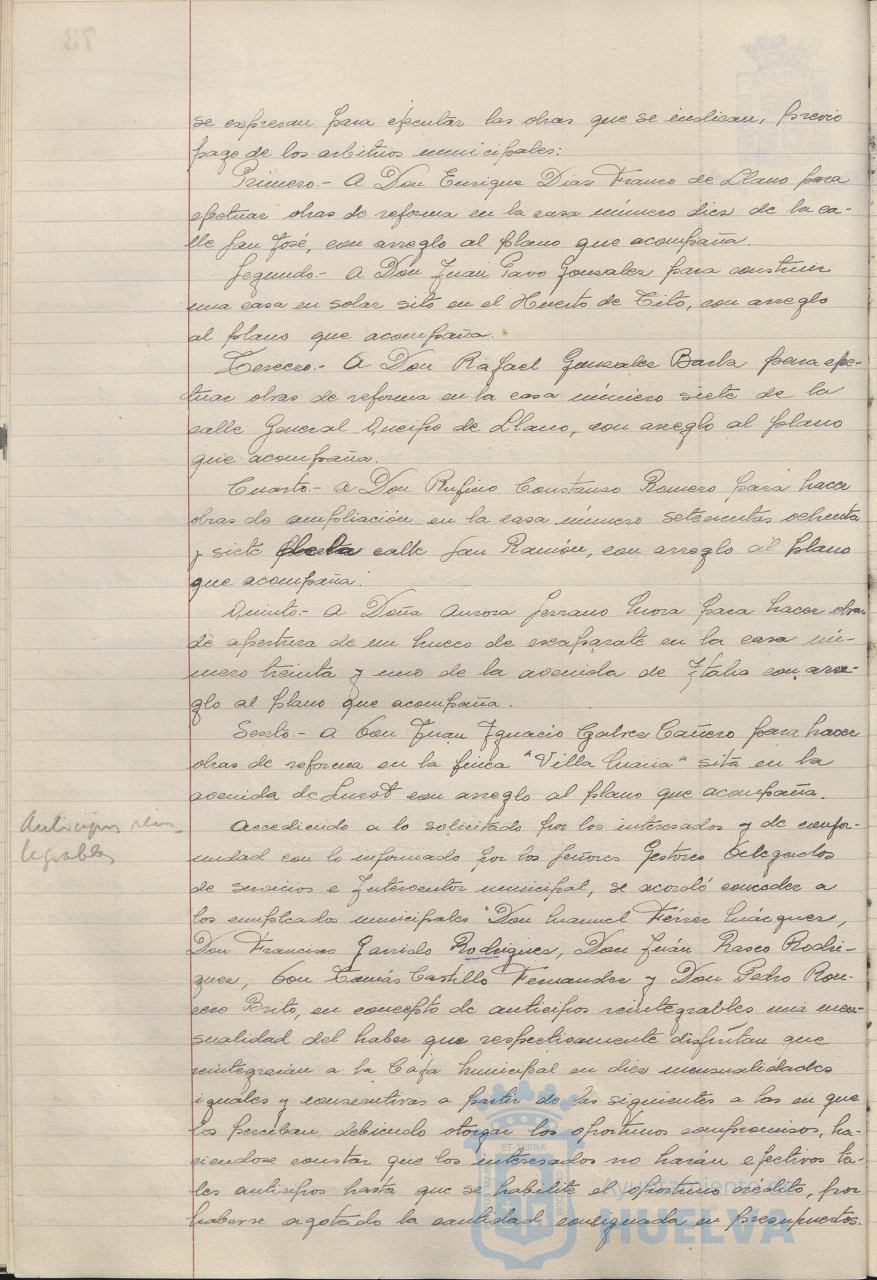 73
se expresan para ejecutar las obras que se indican, previo
pago de los arbitrios municipales:
Primero.- A Don Enrique Dias Franco de Llano para
efectuar obras de reforma en la casa número diez de la ca-
lle San José, con arreglo al plano que acompaña.
Segundo.- A Don Juan Pavo Gonzalez para construir
una casa en solar sito en el Huerto de Tito, con arreglo
al plano que acompaña.
Tercero.- A Don Rafael Gonzalez Barba para efec-
tuar obras de reforma en la casa número siete de la
calle General Queipo de Llano, con arreglo al plano
que acompaña.
Cuarto.- A Don Rufino Constanso Romero para hacer
obras de ampliación en la casa número setecientas ochenta
y siete calle San Ramón, con arreglo al plano
que acompaña.
Quinto.- A Doña Aurora Serrano Mora para hacer obras
de apertura de un hueco de escaparate en la casa nú-
mero treinta y uno de la avenida de Italia con arre-
glo al plano que acompaña.
Sexto.- A Don Juan Ignacio Galvez Cañero para hacer
obras de reforma en la finca "Villa Maria" sita en la
avenida de con arreglo al plano que acompaña.
Anticipos rein-
tegrables
Accediendo a lo solicitado por los interesados y de confor-
midad con lo informado por los Señores Gestores Delegados
de servicios e Interventor municipal, se acordó conceder a
los empleados municipales Don Manuel Ferrer Márquez,
Don Francisco Garrido Rodriguez, Don Juán Rasco Rodri-
guez, Don Tomás Castillo Fernandez y Don Pedro Rom-
ero Brito, en concepto de anticipos reintegrables una men-
sualidad del haber que respectivamente disfrutan que
reintegrarán a la Caja Municipal en diez mensualidades
iguales y consecutivas a partir de las siguientes a las en que
los perciban, debiendo otorgar los oportunos compromisos, ha-
ciendose constar que los interesados no harán efectivos ta-
les anticipos hasta que se habilite el oportuno crédito, por
haberse agotado la cantidad consignada en presupuestos.
Ayuntamiento de
HUELVA